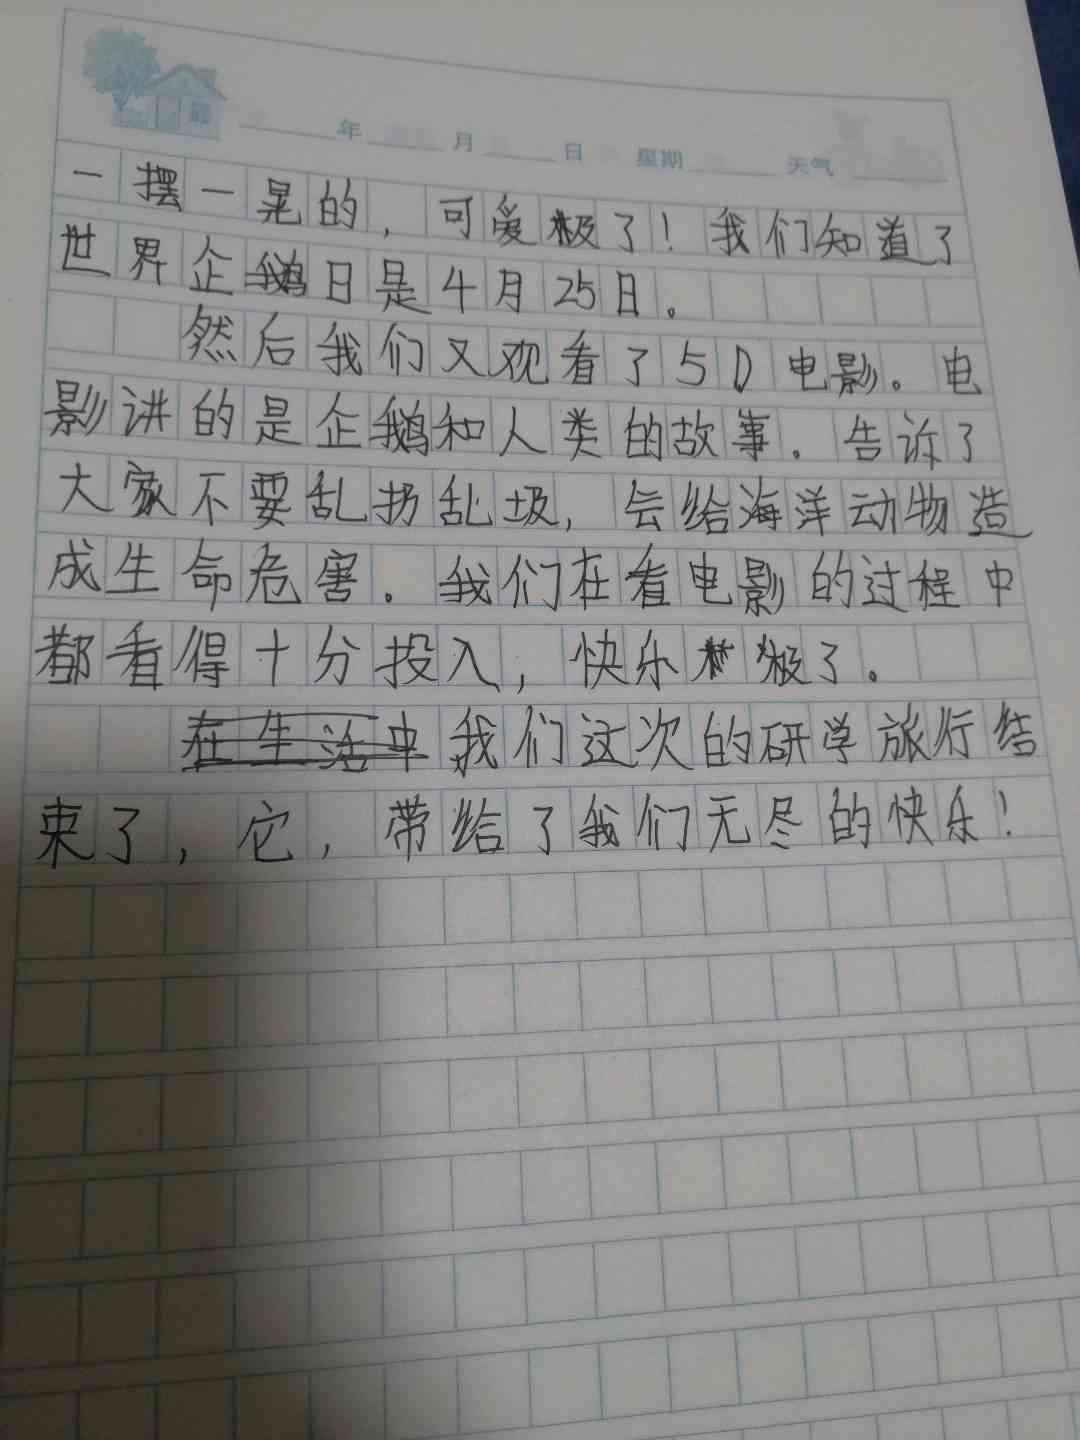 年 月 日 星期 天气
一摆一晃的，可爱极了！我们知道了
世界企鹅日是4月25日。
然后我们又观看了5D电影。电
影讲的是企鹅和人类的故事。告诉了
大家不要乱扔乱圾，会给海洋动物造
成生命危害。我们在看电影的过程中
都看得十分投入，快乐极了。
在生活中我们这次的研学旅行结
束了，它，带给了我们无尽的快乐！